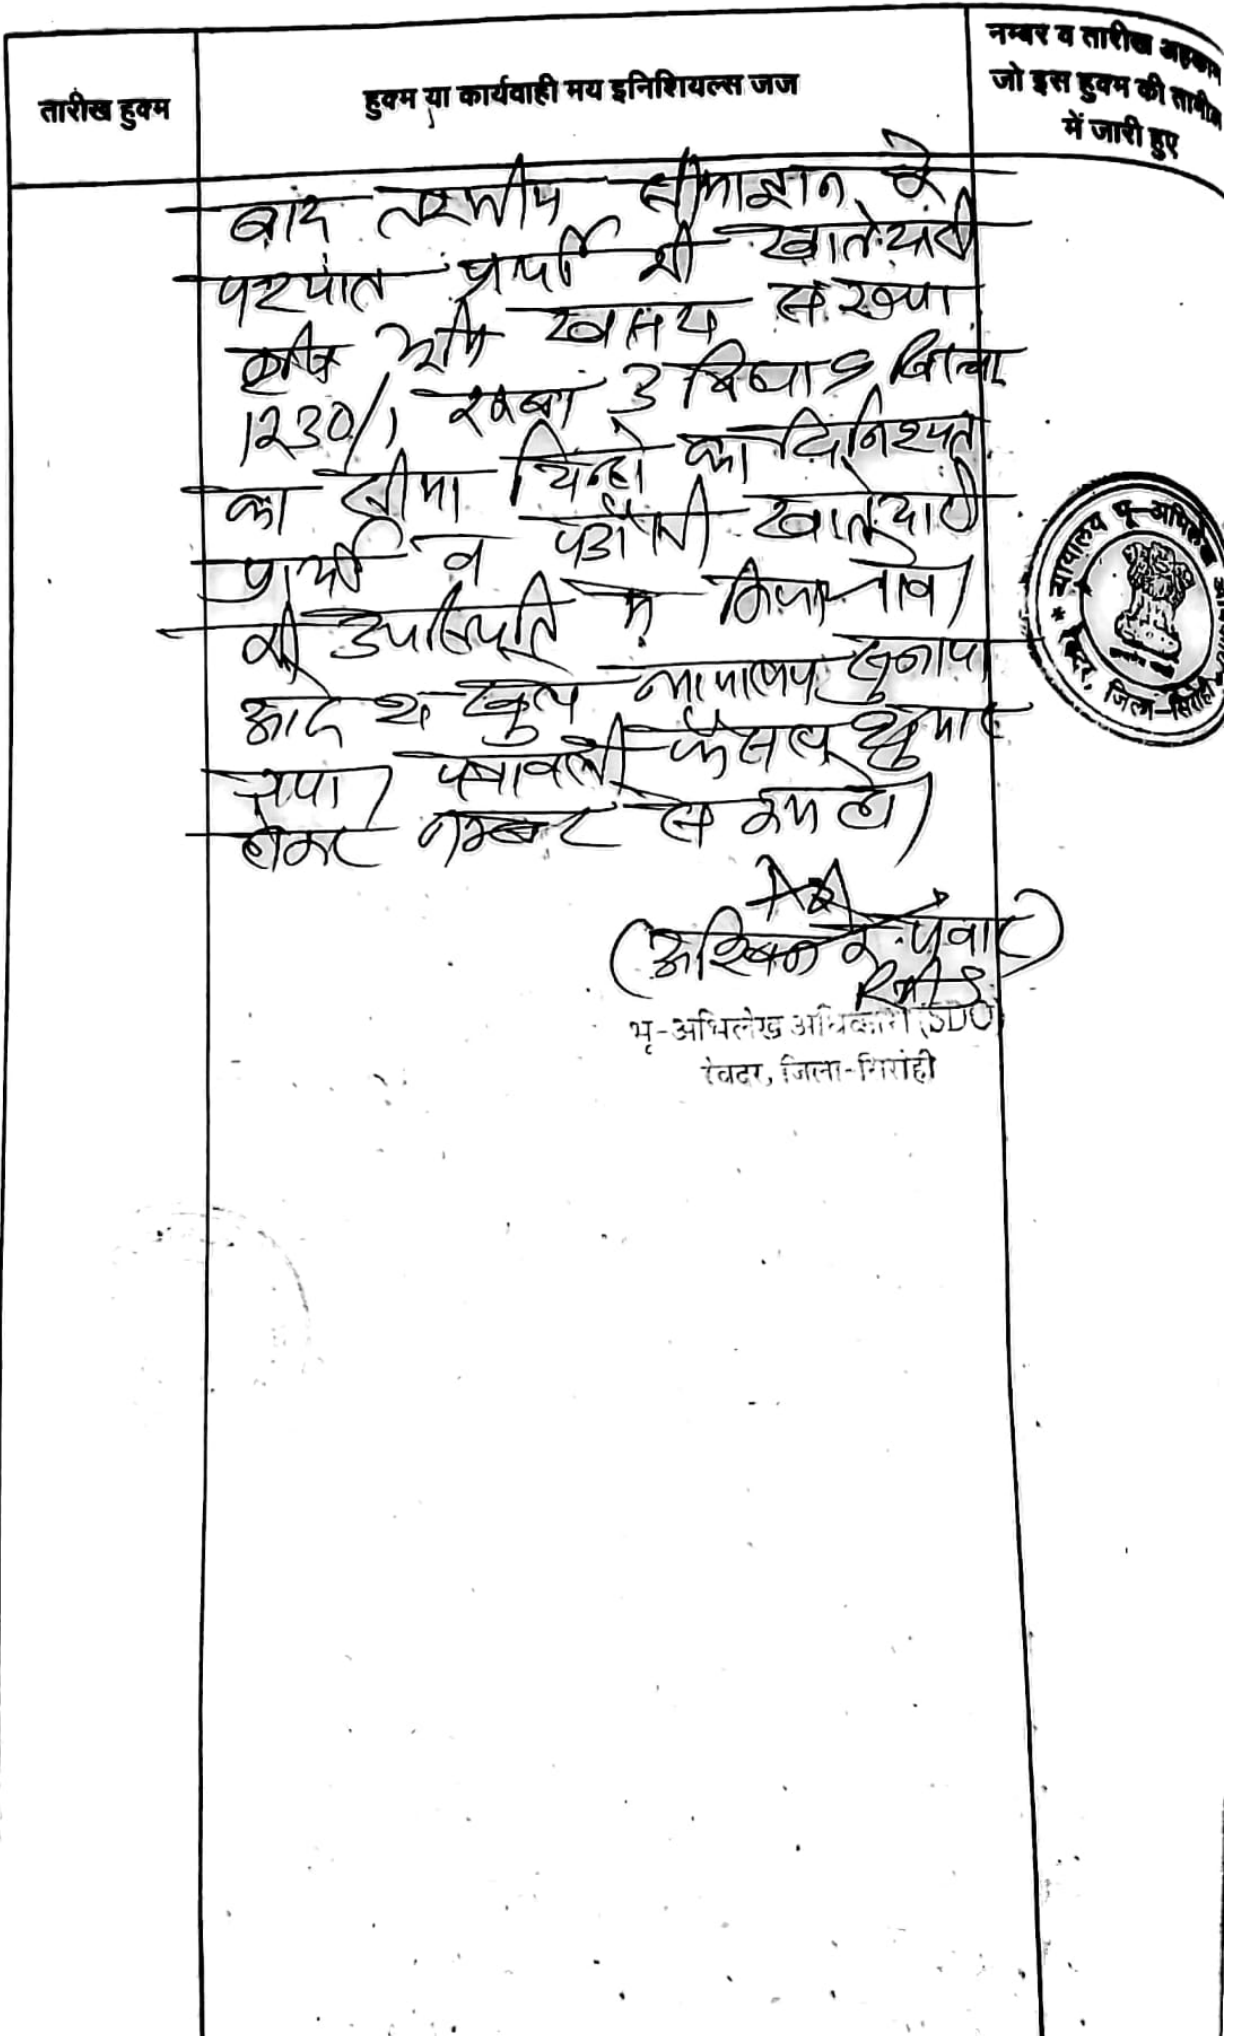 तारीख हुक्म
हुक्म या कार्यवाही मय इनिशियल्स जज
नम्बर व तारीख अहकाम
जो इस हुक्म की तामील
में जारी हुए
बाद तरमीम सीमाज्ञान के
पश्चात प्रार्थी की खातेदारी
कृषि भूमि खसरा संख्या
1230/1 रकबा 3 बिघा 9 बिस्वा
का सीमा चिन्हो का विनिश्चय
प्रार्थी व पडौसी खातेदारो
की उपस्थिति में किया जावे।
आदेश खुले न्यायालय सुनाया
गया। पत्रावली फैसल शुमार
होकर नम्बर से कम हो।
पंवार)
RAS
भू-अभिलेख अधिकारी (SDO)
रेवदर, जिला-सिरोही
न्यायालय भू-अभिलेख
रेवदर, जिला-सिरोही